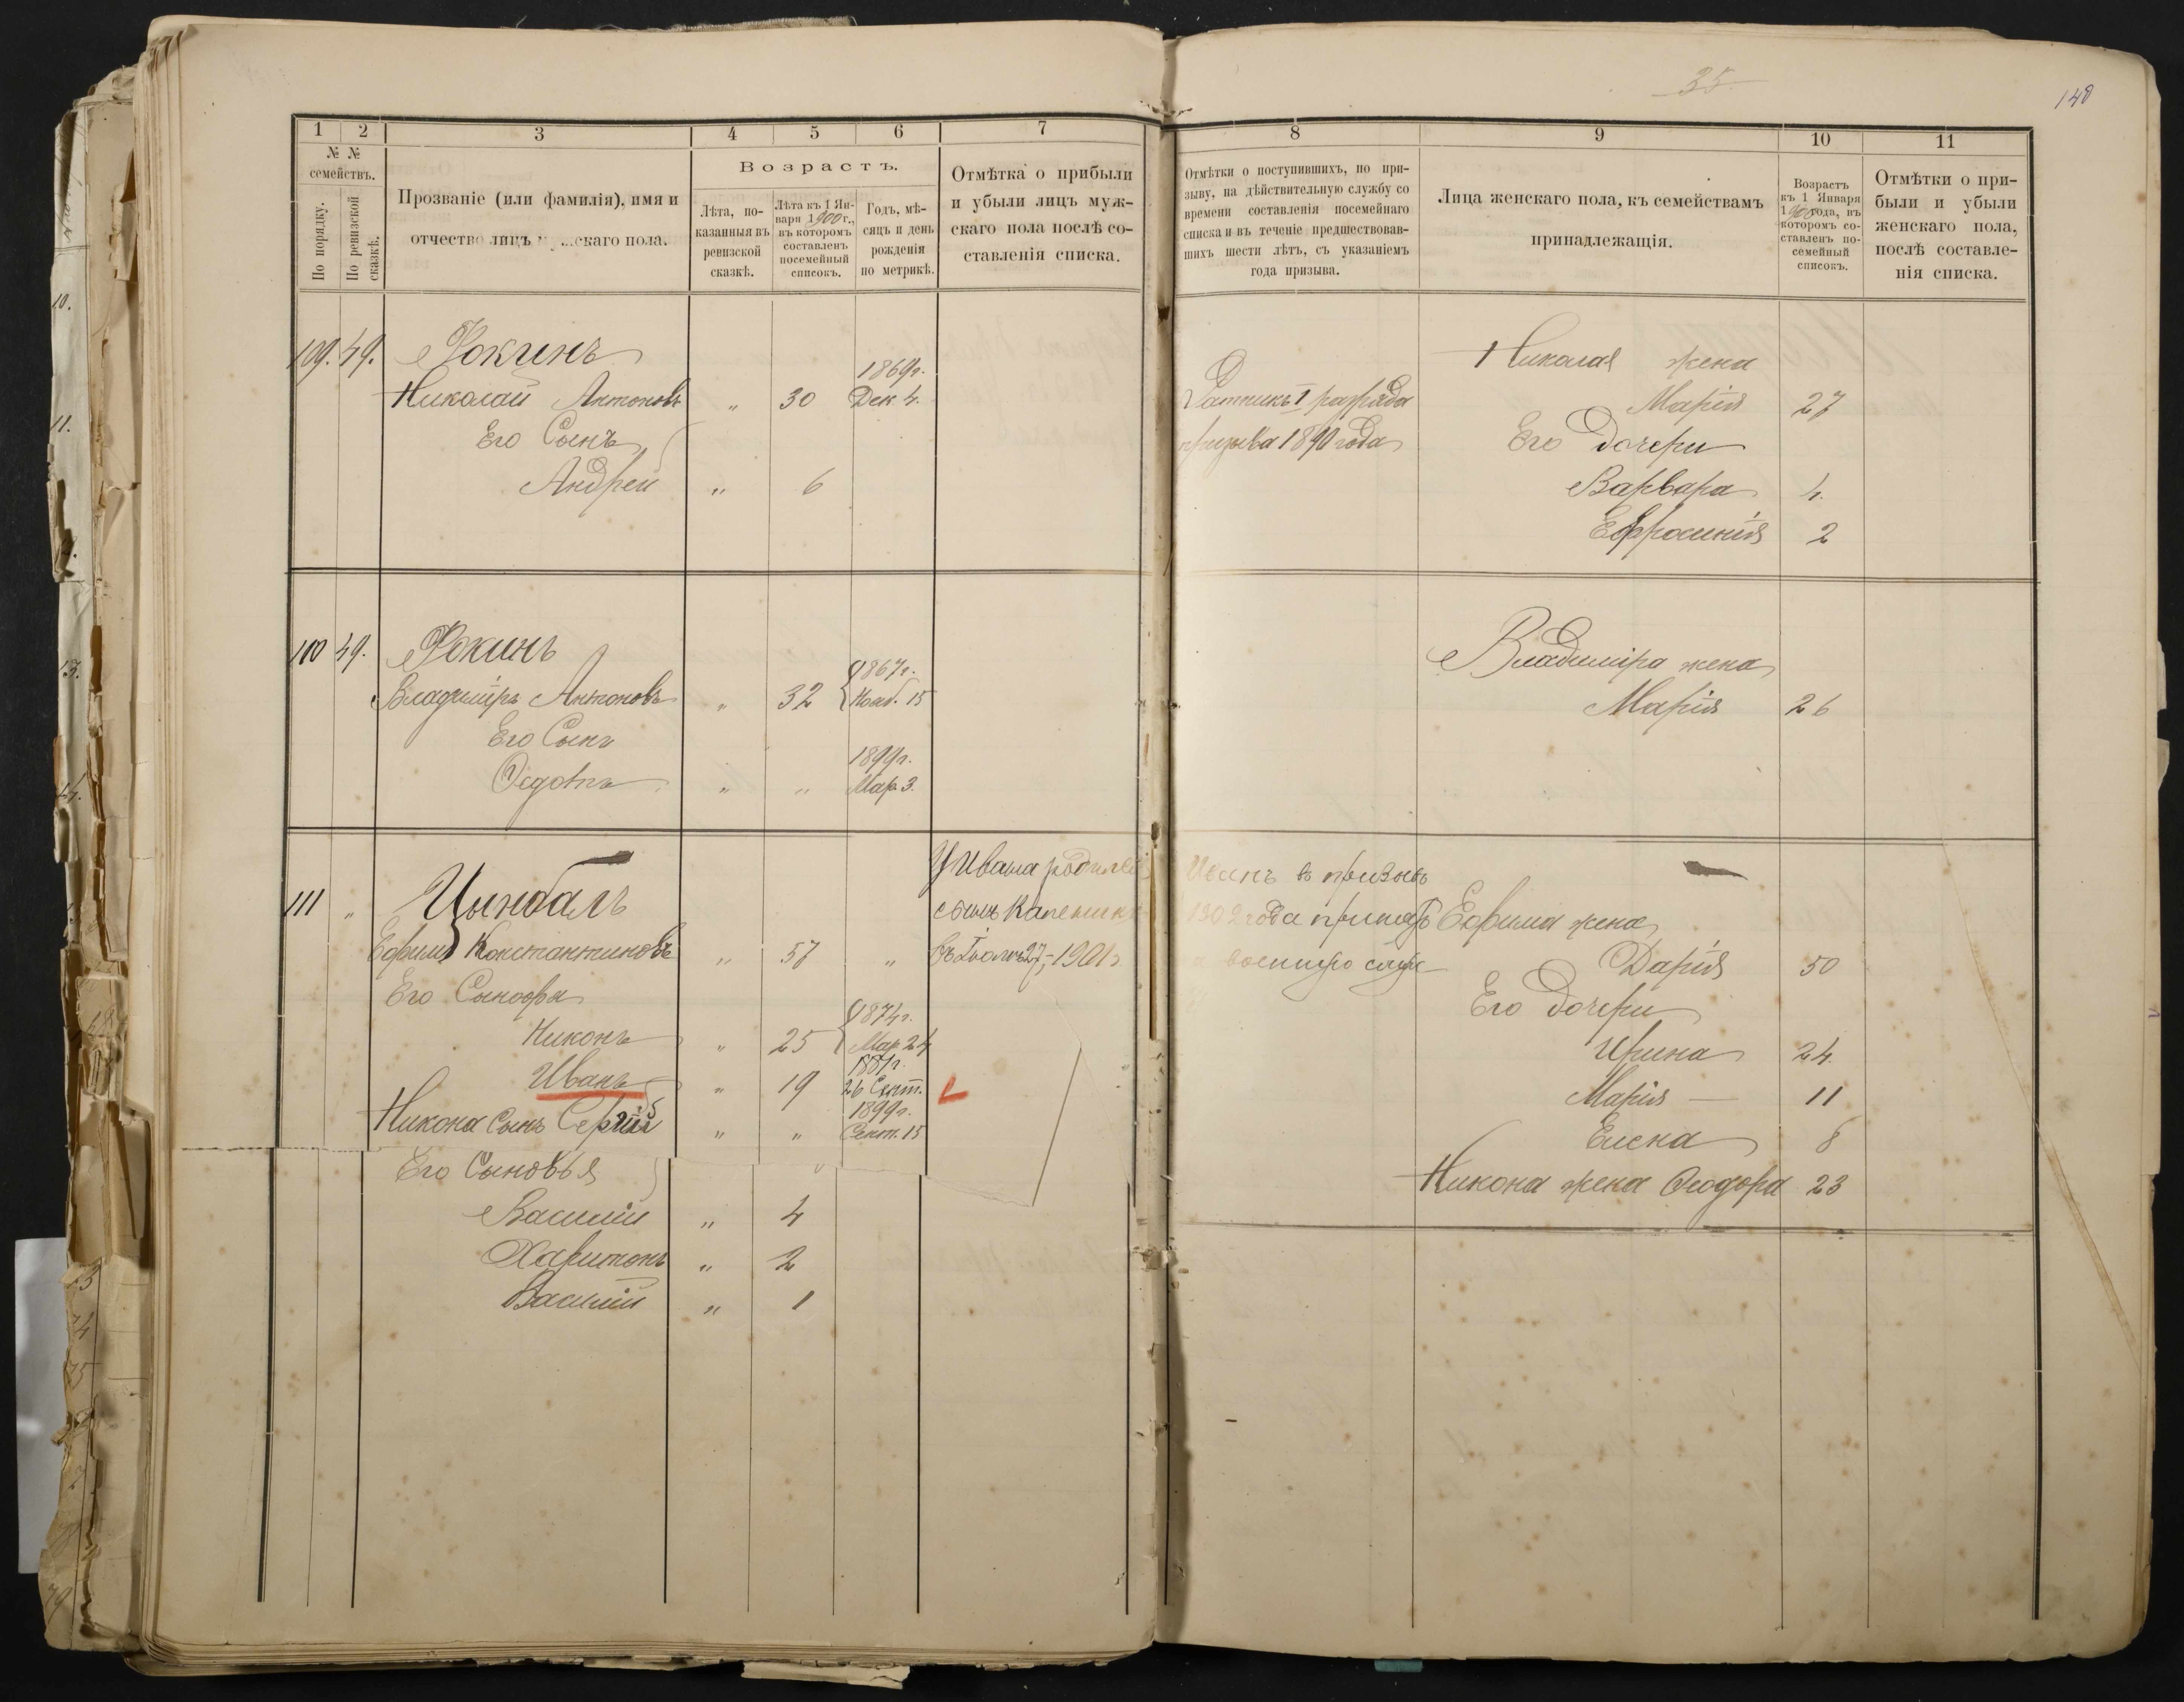 35
148
1
2
3
4
5
6
7
8
9
10
11
№ №
семействъ.
По порядку.
По ревизской
сказкѣ.
Прозваніе (или фамилія), имя и
отчество лицъ скаго пола.
Возрастъ.
Лѣта, по-
казанныя въ
ревизской
сказкѣ.
Лѣта къ 1 Ян-
варя 1900 г.,
въ которомъ
составленъ
посемейный
списокъ.
Годъ, мѣ-
сяцъ и день
рожденія
по метрикѣ.
Отмѣтка о прибыли
и убыли лицъ муж-
скаго пола послѣ со-
ставленія списка.
Отмѣтки о поступившихъ, по при-
зыву, на дѣйствительную службу со
времени составленія посемейнаго
списка и въ теченіе предшествовав-
шихъ шести лѣтъ, съ указаніемъ
года призыва.
Лица женскаго пола, къ семействамъ
принадлежащія.
Возрастъ
къ 1 Января
1900 года, въ
которомъ со-
ставленъ по-
семейный
списокъ.
Отмѣтки о при-
были и убыли
женскаго пола,
послѣ составле-
нія списка.
109. 49. Фокинъ
1869г.
Николай Антоновъ " 30 Дек 4.
Его Сынъ
Андрей " 6
Ратникъ I разряда
призыва 1890 года
Николая жена
Марія 27
Его дочери
Варвара 4.
Ефросинія 2
110 49. Фокинъ
1867г.
Владиміръ Антоновъ " 32 Нояб. 15
Его Сынъ
1899г.
Федотъ " " Мар. 3.
Владиміра жена
Марія 26
111 " Цынбалъ
Ефимъ Константиновъ " 57 "
Его Сыновья
1874г.
Никонъ " 25 Мар 24
1881г.
Иванъ " 19 26 Сент.
1899г.
Никона Сынъ Сергій " " Сент. 15
У Ивана родился
сынъ
27, 1901г.
Иванъ въ призывъ
1902 года принятъ
военную служ
Ефима жена
Дарія 50
Его дочери
Ирина 24.
Марія — 11
Елена 8
Никона жена Феодора 23
Его Сыновья
Василій " 4
Харитонъ " 2
Василій " 1